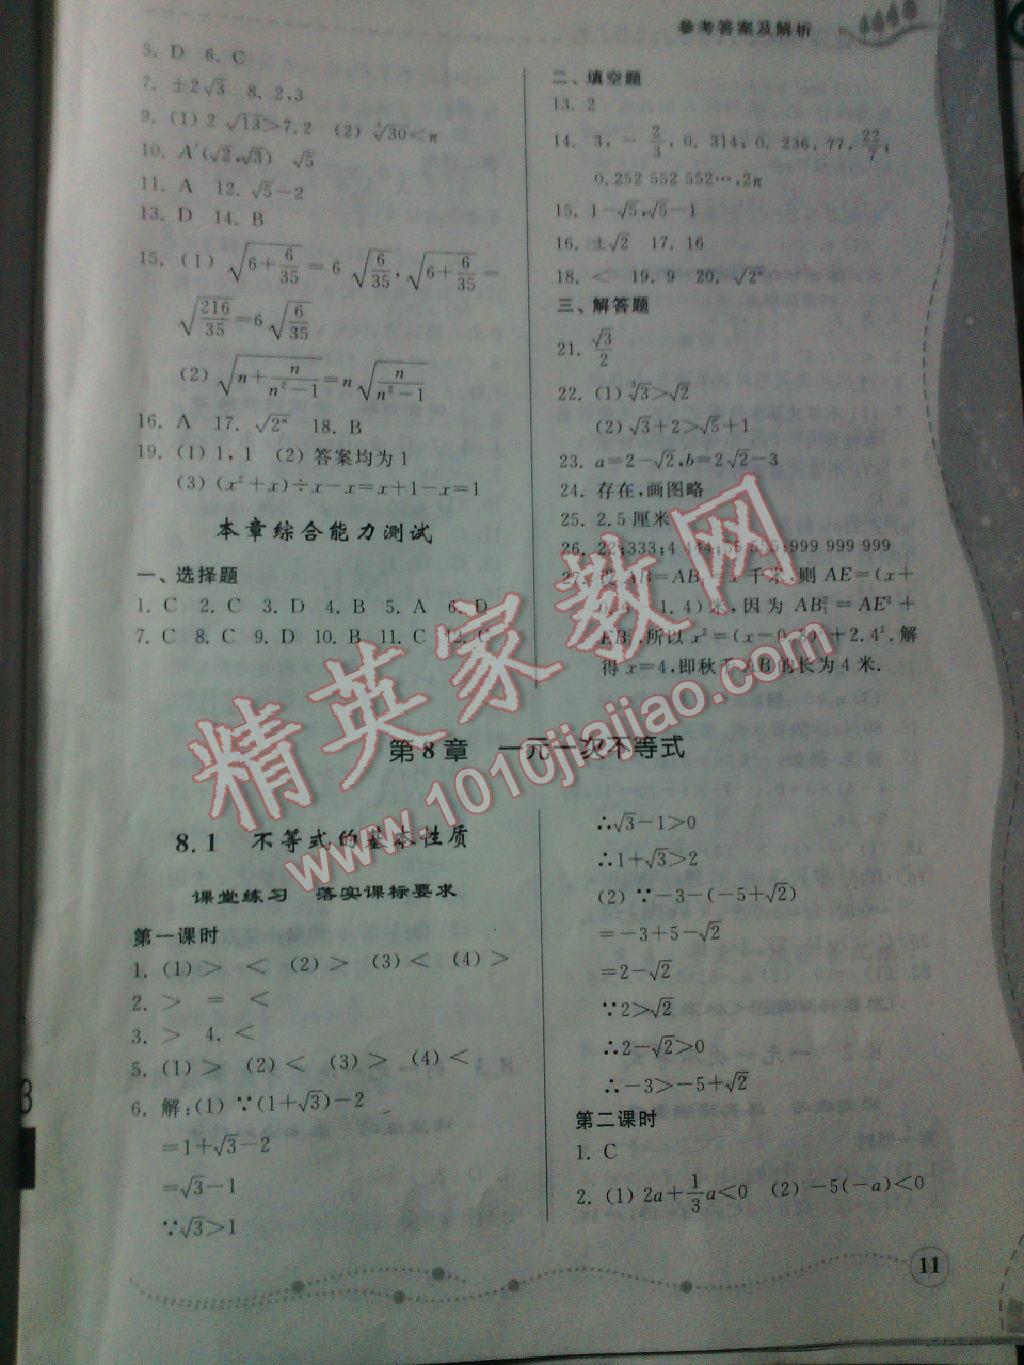 参考答案及解析
5. D 6. C
7. ±2√3 8. 2,3
9. (1) 2√13>7.2 (2) ∛30<π
10. A′(√2,√3) √5
11. A 12. √5-2
13. D 14. B
15. (1) √(6+6/35)=6√(6/35),√(6+6/35)=
√(216/35)=6√(6/35)
(2) √(n+n/(n²-1))=n√(n/(n²-1))
16. A 17. √2ⁿ 18. B
19. (1) 1, 1 (2) 答案均为1
(3) (x²+x)÷x-x=x+1-x=1
本章综合能力测试
一、选择题
1. C 2. C 3. D 4. B 5. A 6. D
7. C 8. C 9. D 10. B 11. C 12. C
二、填空题
13. 2
14. 3, -2/3, 0.314, 0.236, 77, 22/7;
0.252 552 552…,2π
15. 1-√5,√5-1
16. ±√2 17. 16
18. < 19. 9 20. √2ⁿ
三、解答题
21. √3/2
22. (1) ∛3>√2
(2) √3+2>√5+1
23. a=2-√2,b=2√2-3
24. 存在,画图略
25. 2.5厘米
26. 22;333;4 444;55 555;999 999 999
27. 设 AB=AB₁=x 千米,则 AE=(x+
1.4)米,因为 AB₁²=AE²+
EB₁²,所以 x²=(x-0.8)²+2.4²,解
得 x=4,即秋千 AB 的长为 4 米.
第8章 一元一次不等式
8.1 不等式的基本性质
课堂练习 落实课标要求
第一课时
1. (1) > < (2) > (3) < (4) >
2. > = <
3. > 4. <
5. (1) > (2) < (3) > (4) <
6. 解:(1) ∵(1+√3)-2
=1+√3-2
=√3-1
∵√3>1
∴√3-1>0
∴1+√3>2
(2) ∵-3-(-5+√2)
=-3+5-√2
=2-√2
∵2>√2
∴2-√2>0
∴-3>-5+√2
第二课时
1. C
2. (1) 2a+1/3a<0 (2) -5(-a)<0
11
精英家教网
www.1010jiajiao.com